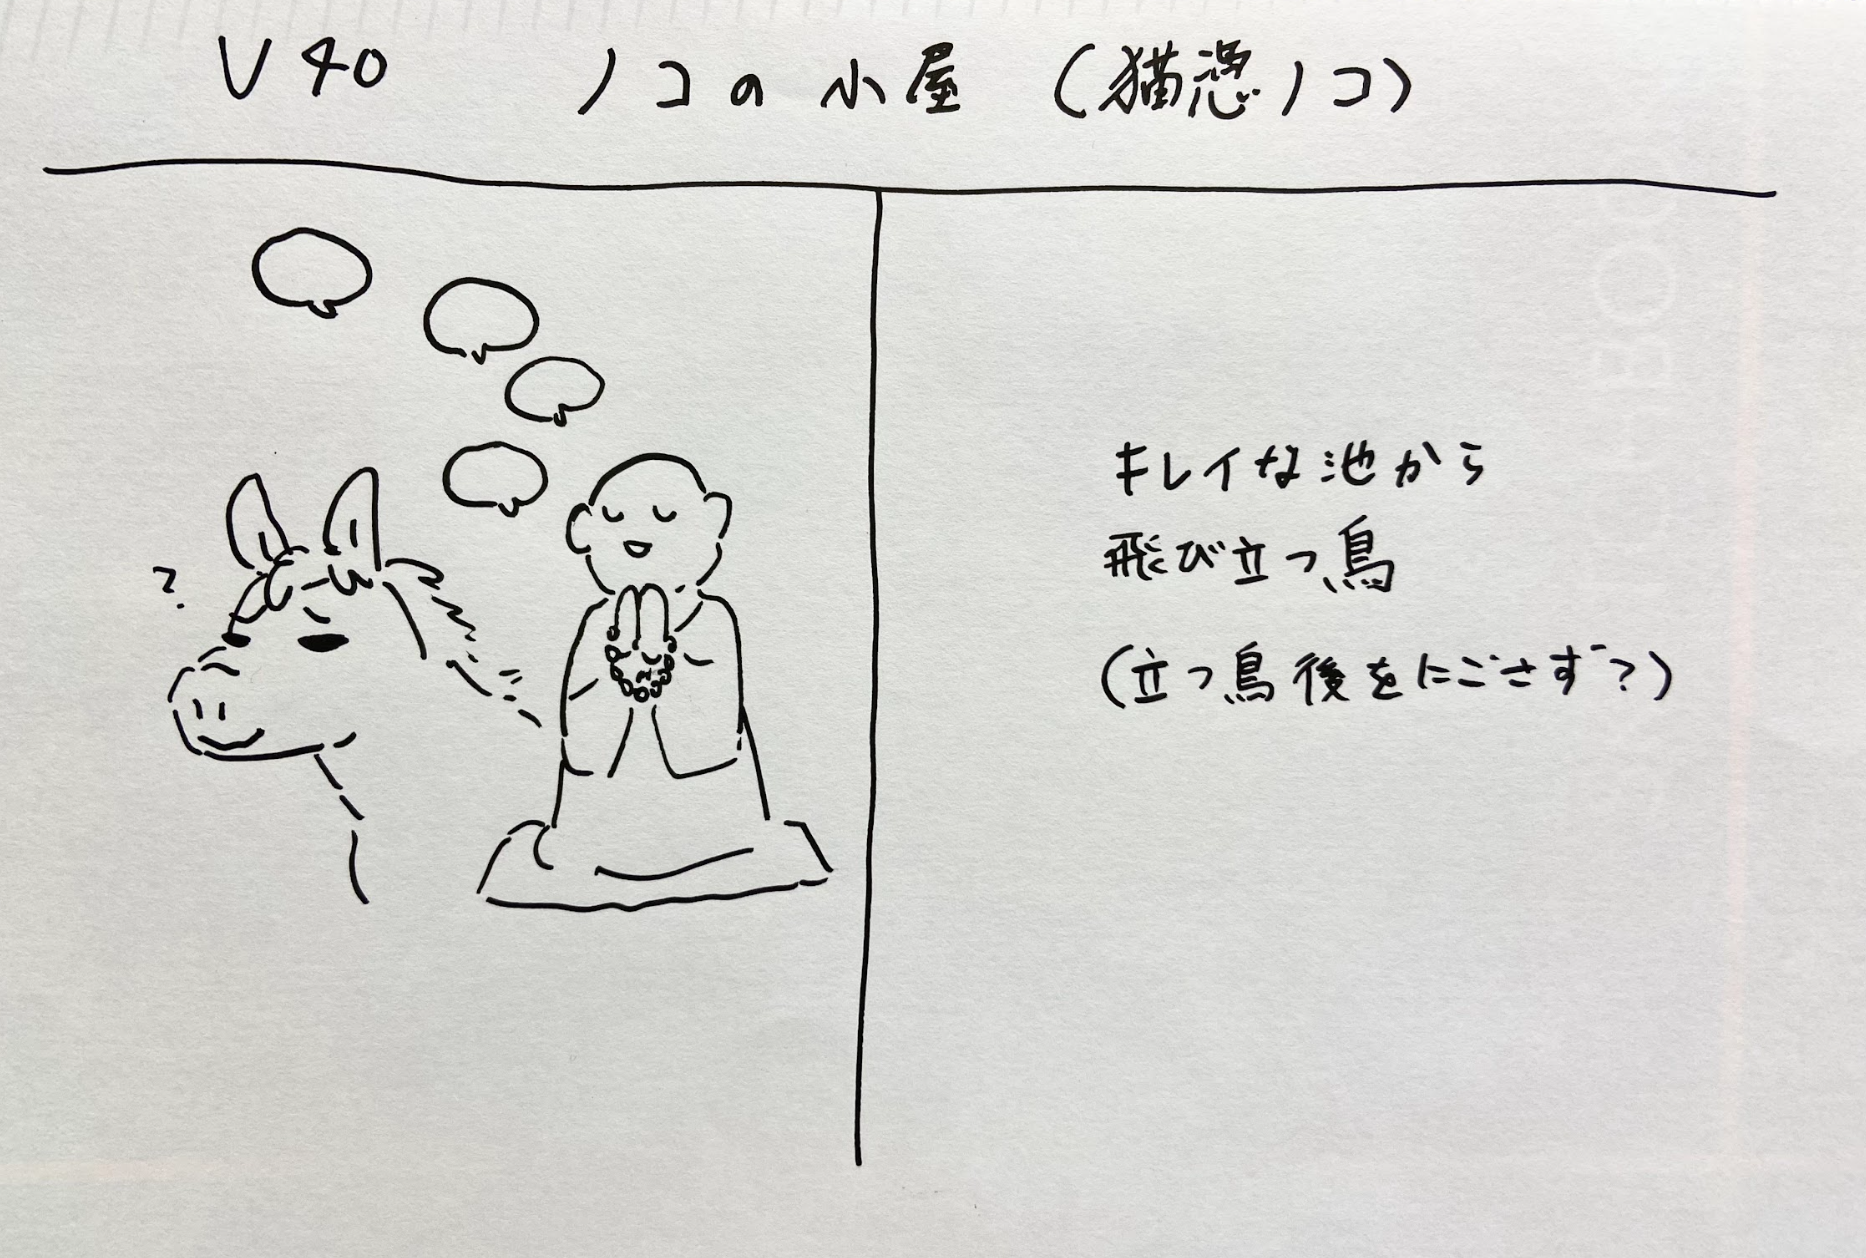 V40 ノコの小屋 (猫憑ノコ)
?
キレイな池から
飛び立つ鳥
(立つ鳥後をにごさず?)